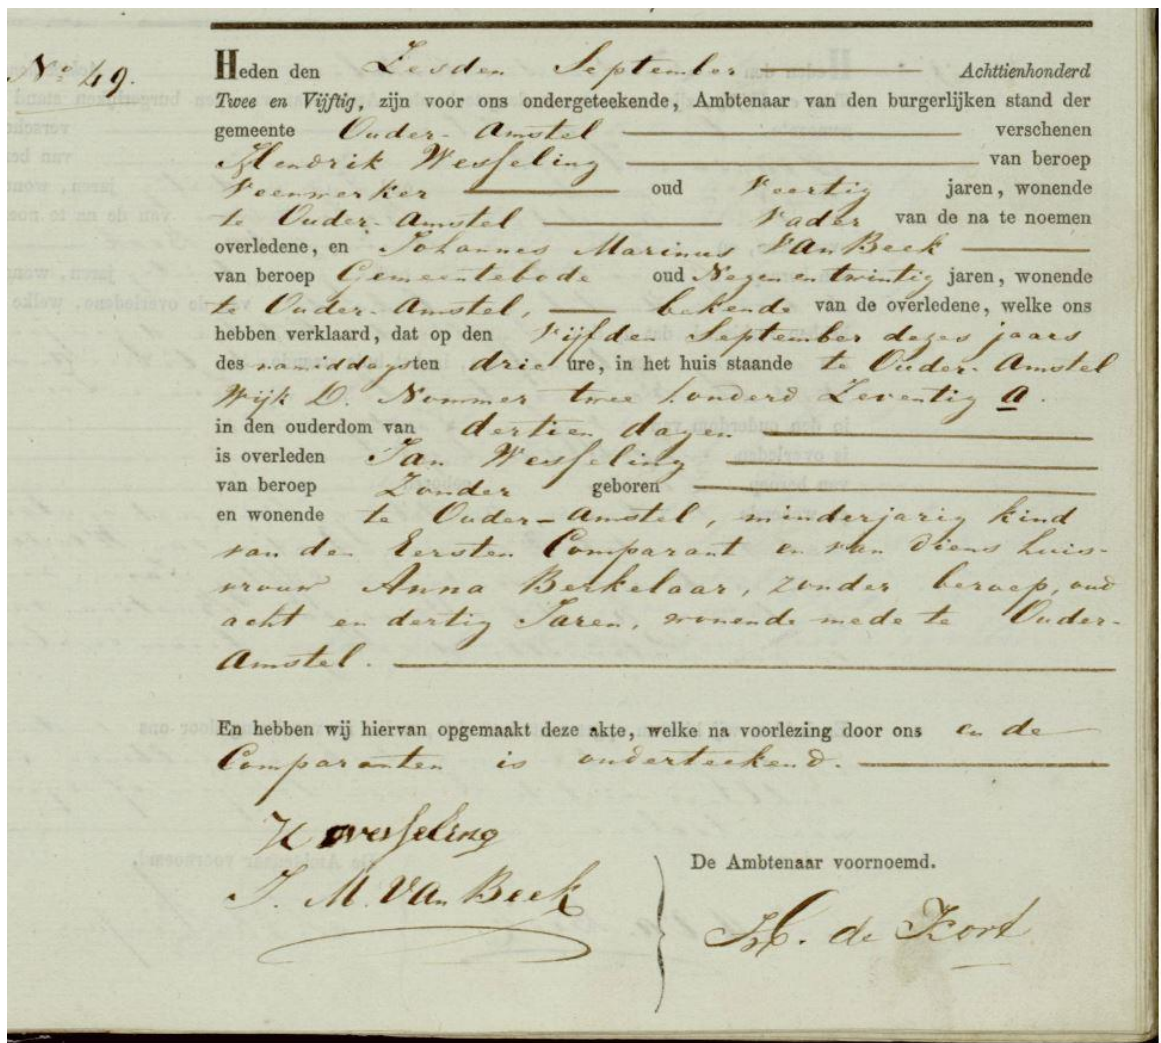 No 49.
Heden den Zesden September Achttienhonderd
Twee en Vijftig, zijn voor ons ondergeteekende, Ambtenaar van den burgerlijken stand der
gemeente Ouder-Amstel verschenen
Hendrik Wesseling van beroep
Veenwerker oud Veertig jaren, wonende
te Ouder-Amstel Vader van de na te noemen
overledene, en Johannes Marinus Van Beek
van beroep Gemeentebode oud Negenentwintig jaren, wonende
te Ouder-Amstel, bekende van de overledene, welke ons
hebben verklaard, dat op den Vijfden September dezes jaars
des namiddagsten drie ure, in het huis staande te Ouder-Amstel
Wijk D. Nommer twee honderd Zeventig a.
in den ouderdom van dertien dagen
is overleden Jan Wesseling
van beroep Zonder geboren
en wonende te Ouder-Amstel, minderjarig kind
van den Eersten Comparant en van diens huis-
vrouw Anna Berkelaar, zonder beroep, oud
acht en dertig Jaren, wonende mede te Ouder-
Amstel.
En hebben wij hiervan opgemaakt deze akte, welke na voorlezing door ons en de
Comparanten is onderteekend.
H Wesseling
J. M. Van Beek
De Ambtenaar voornoemd.
de Kort